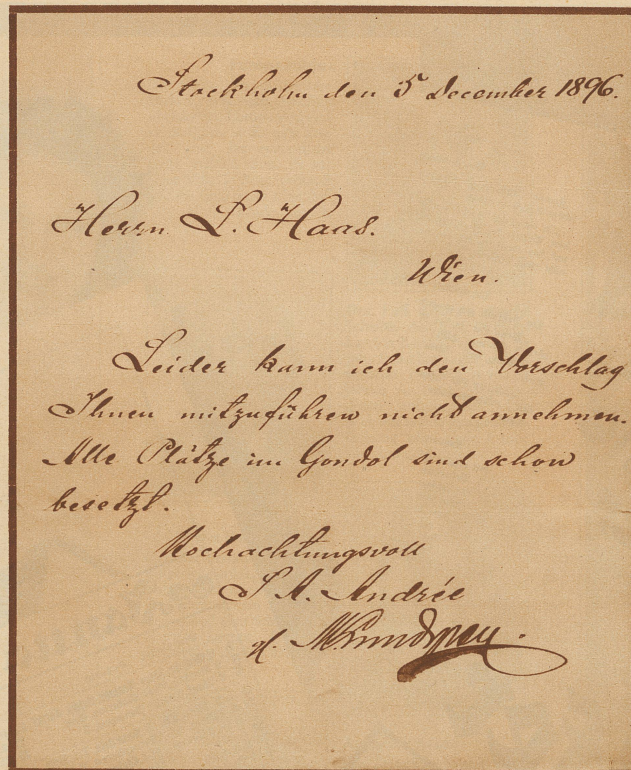 Stockholm den 5 December 1896.
Herrn L. Haas.
Wien.
Leider kann ich den Vorschlag
Ihnen mitzuführen nicht annehmen.
Alle Plätze im Gondol sind schon
besetzt.
Hochachtungsvoll
S A. Andrée